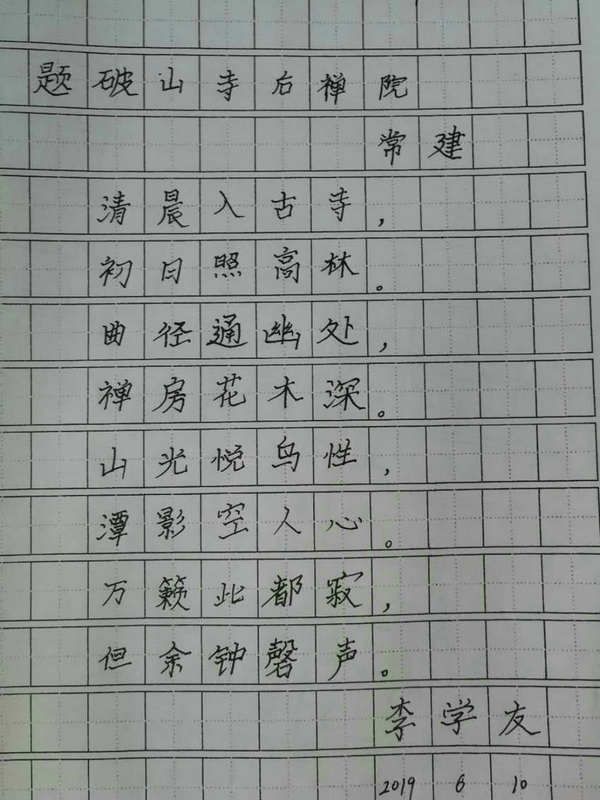 题破山寺后禅院
常建
清晨入古寺，
初日照高林。
曲径通幽处，
禅房花木深。
山光悦鸟性，
潭影空人心。
万籁此都寂，
但余钟磬声。
李学友
2019 6 10